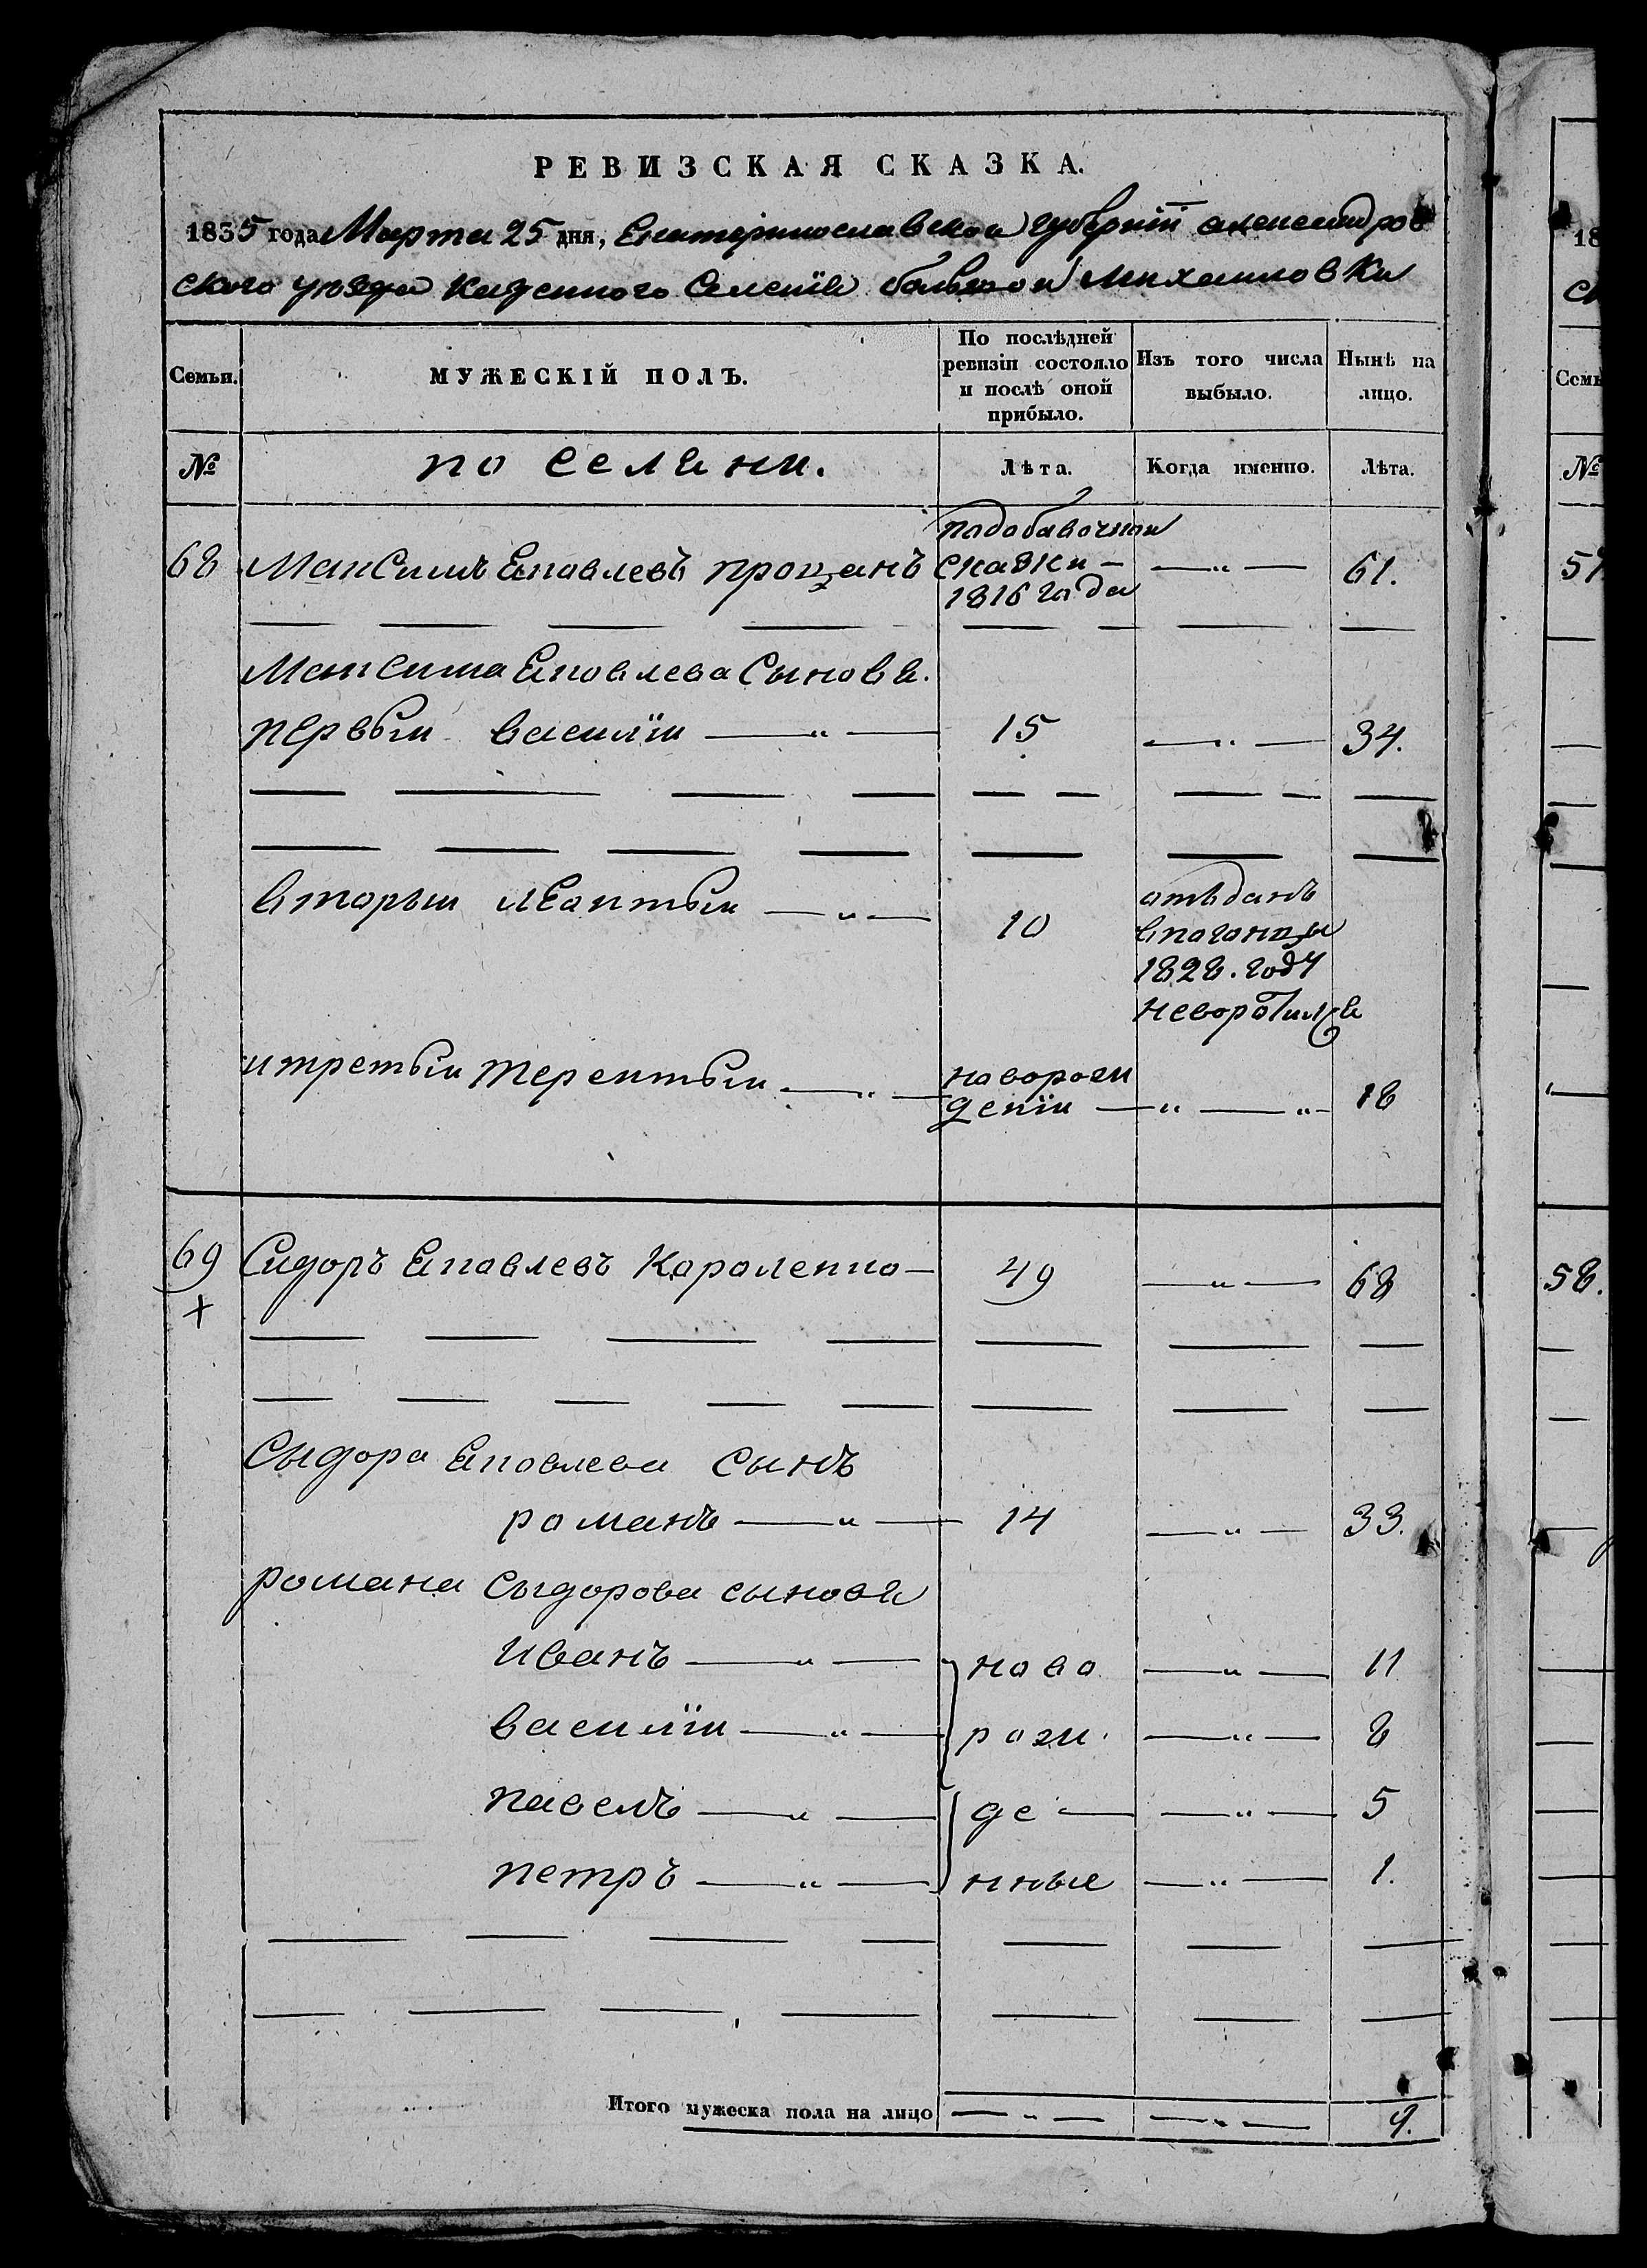 РЕВИЗСКАЯ СКАЗКА.
1835 года Марта 25 дня, Екатеринославской губернїи александров
ского уюзда казенного Селенїя большой михаиловки
Семьи.
МУЖЕСКІЙ ПОЛЪ.
По послѣдней ревизіи состояло и послѣ оной прибыло.
Изъ того числа выбыло.
Нынѣ на лицо.
№
поселяни.
Лѣта.
Когда именно.
Лѣта.
подобавочной
68 Максимъ Яковлевъ проценъ сказки — „ — 61.
1816 года
Максима Яковлева Сыновя.
первый василїи — „ — 15 — „ — 34.
вторыи леонтьи — „ — 10
отъданъ
впогонцы
1828. году
неворотился
итретьи терентьи — „ — новорож
денїи — „ — „ — 18
69 Сидоръ Яковлевъ Короленко — 49 — „ — 68
х
Сыдора Яковлева сынъ
романъ — „ — 14 — „ — 33.
романа сыдорова сыновя
Иванъ — „ — ново — „ — 11
василїи — „ — рож. — „ — 8
павелъ — „ — де — — „ — 5
петръ — „ — нные — „ — 1.
Итого мужеска пола на лицо — „ — — „ — 9.
18
Семь
№
57
58.